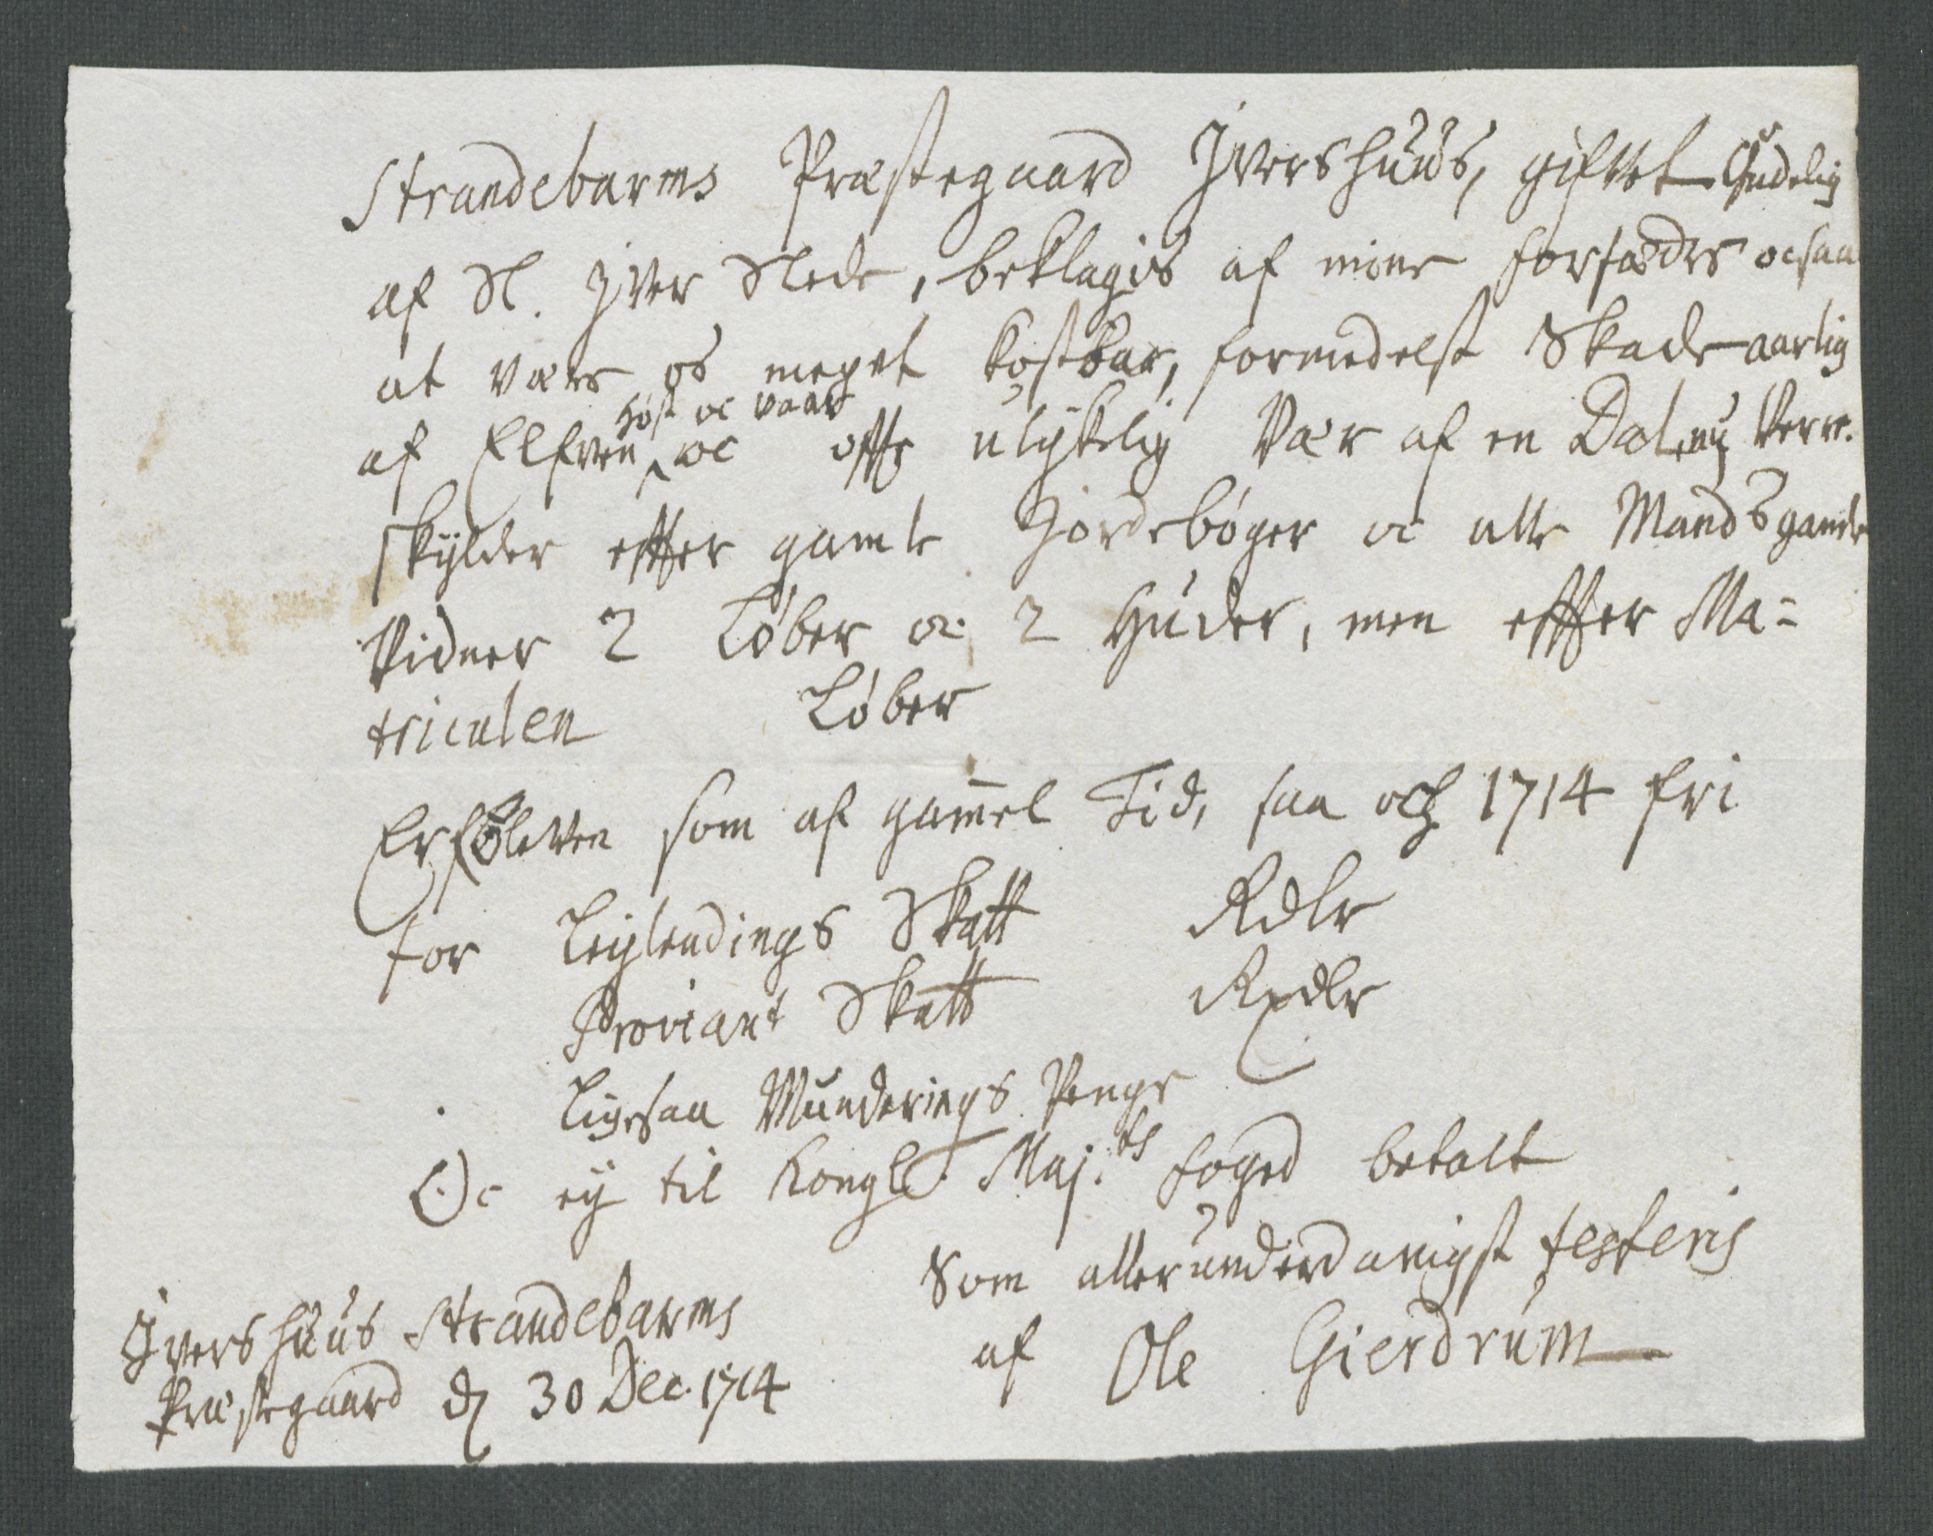 Strandebarms Præstegaard Ivershuus, gifvet Gudelig
af Sl. Iver Slede, beklagis af mine forfædre ocsaa
at være os meget kostbar, formedelst Skade aarlig
af Elfven høst oc vaar oc offte ulykelig Vær af en Dal,
skylder effter gamle Jordebøger oc alle Mands gamle
Vidner 2 Løber oc 2 Huder, men effter Ma-
triculen Løber
Er som af gam̅el Tid, saa och 1714 fri
for Leylendings Skatt Rdlr
Proviant Skatt Rxdlr
Ligesaa Munderings Penge
Oc ey til Kongl. Maj.ts foged betalt
Som allerunderdanigst testeris
af Ole Gierdrum
Ivershuus Strandebarms
Præstegaard d 30 Dec. 1714